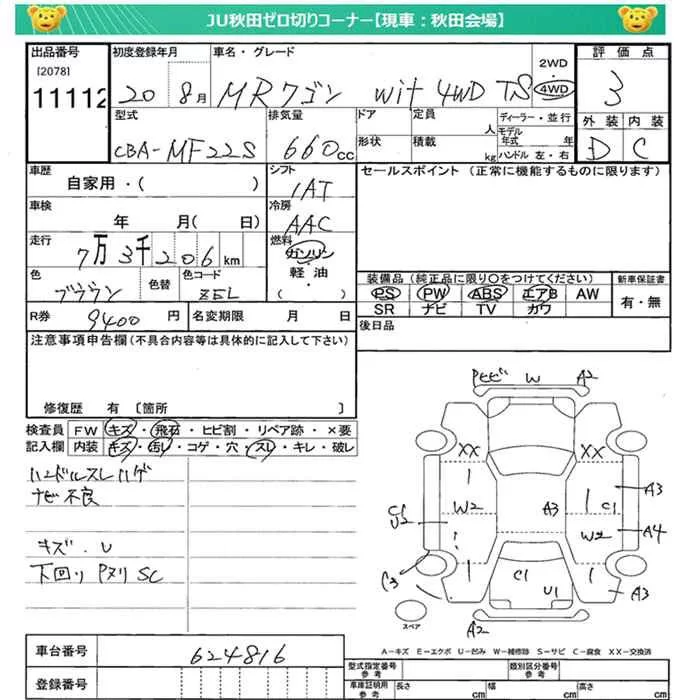 JU秋田ゼロ切りコーナー【現車：秋田会場】
出品番号
[2078]
11112
初度登録年月
20 8月
車名・グレード
MRワゴン wit 4WD TS
2WD
・
4WD
評価点
3
外装 内装
D C
型式
CBA-MF22S
排気量
660cc
ドア
形状
定員
人
積載
kg
ディーラー・並行
モデル年式 年
ハンドル 左・右
車歴
自家用・( )
車検
年 月( 日)
走行
7万3千206km
色
ブラウン
色替
色コード
ZEL
シフト
IAT
冷房
AAC
燃料
ガソリン
・
軽・油
( )
セールスポイント (正常に機能するものに限ります)
装備品(純正品に限り○をつけてください)
PS PW ABS エアB AW
SR ナビ TV カワ
新車保証書
有・無
後日品
R券
9400円
名変期限 月 日
注意事項申告欄(不具合内容等は具体的に記入して下さい)
修復歴 有 [箇所 ]
検査員
記入欄
FW キズ・飛石・ヒビ割・リペア跡・×要
内装 キズ・汚レ・コゲ・穴・スレ・キレ・破レ
ハンドルスレ ハゲ
ナビ不良
キズ．U
下回り Pヌリ SC
Pヒビ W A2
XX XX
A3
C1
U2
W2
A3
C1
W2
A4
C3
C1
U1
A3
A2
スペア
A－キズ E－エクボ U－凹み W－補修跡 S－サビ C－腐食 XX－交換済
車台番号
624816
登録番号
型式指定番号
参考
類別区分番号
参考
車庫証明用
参考
長さ cm
幅 cm
高さ cm